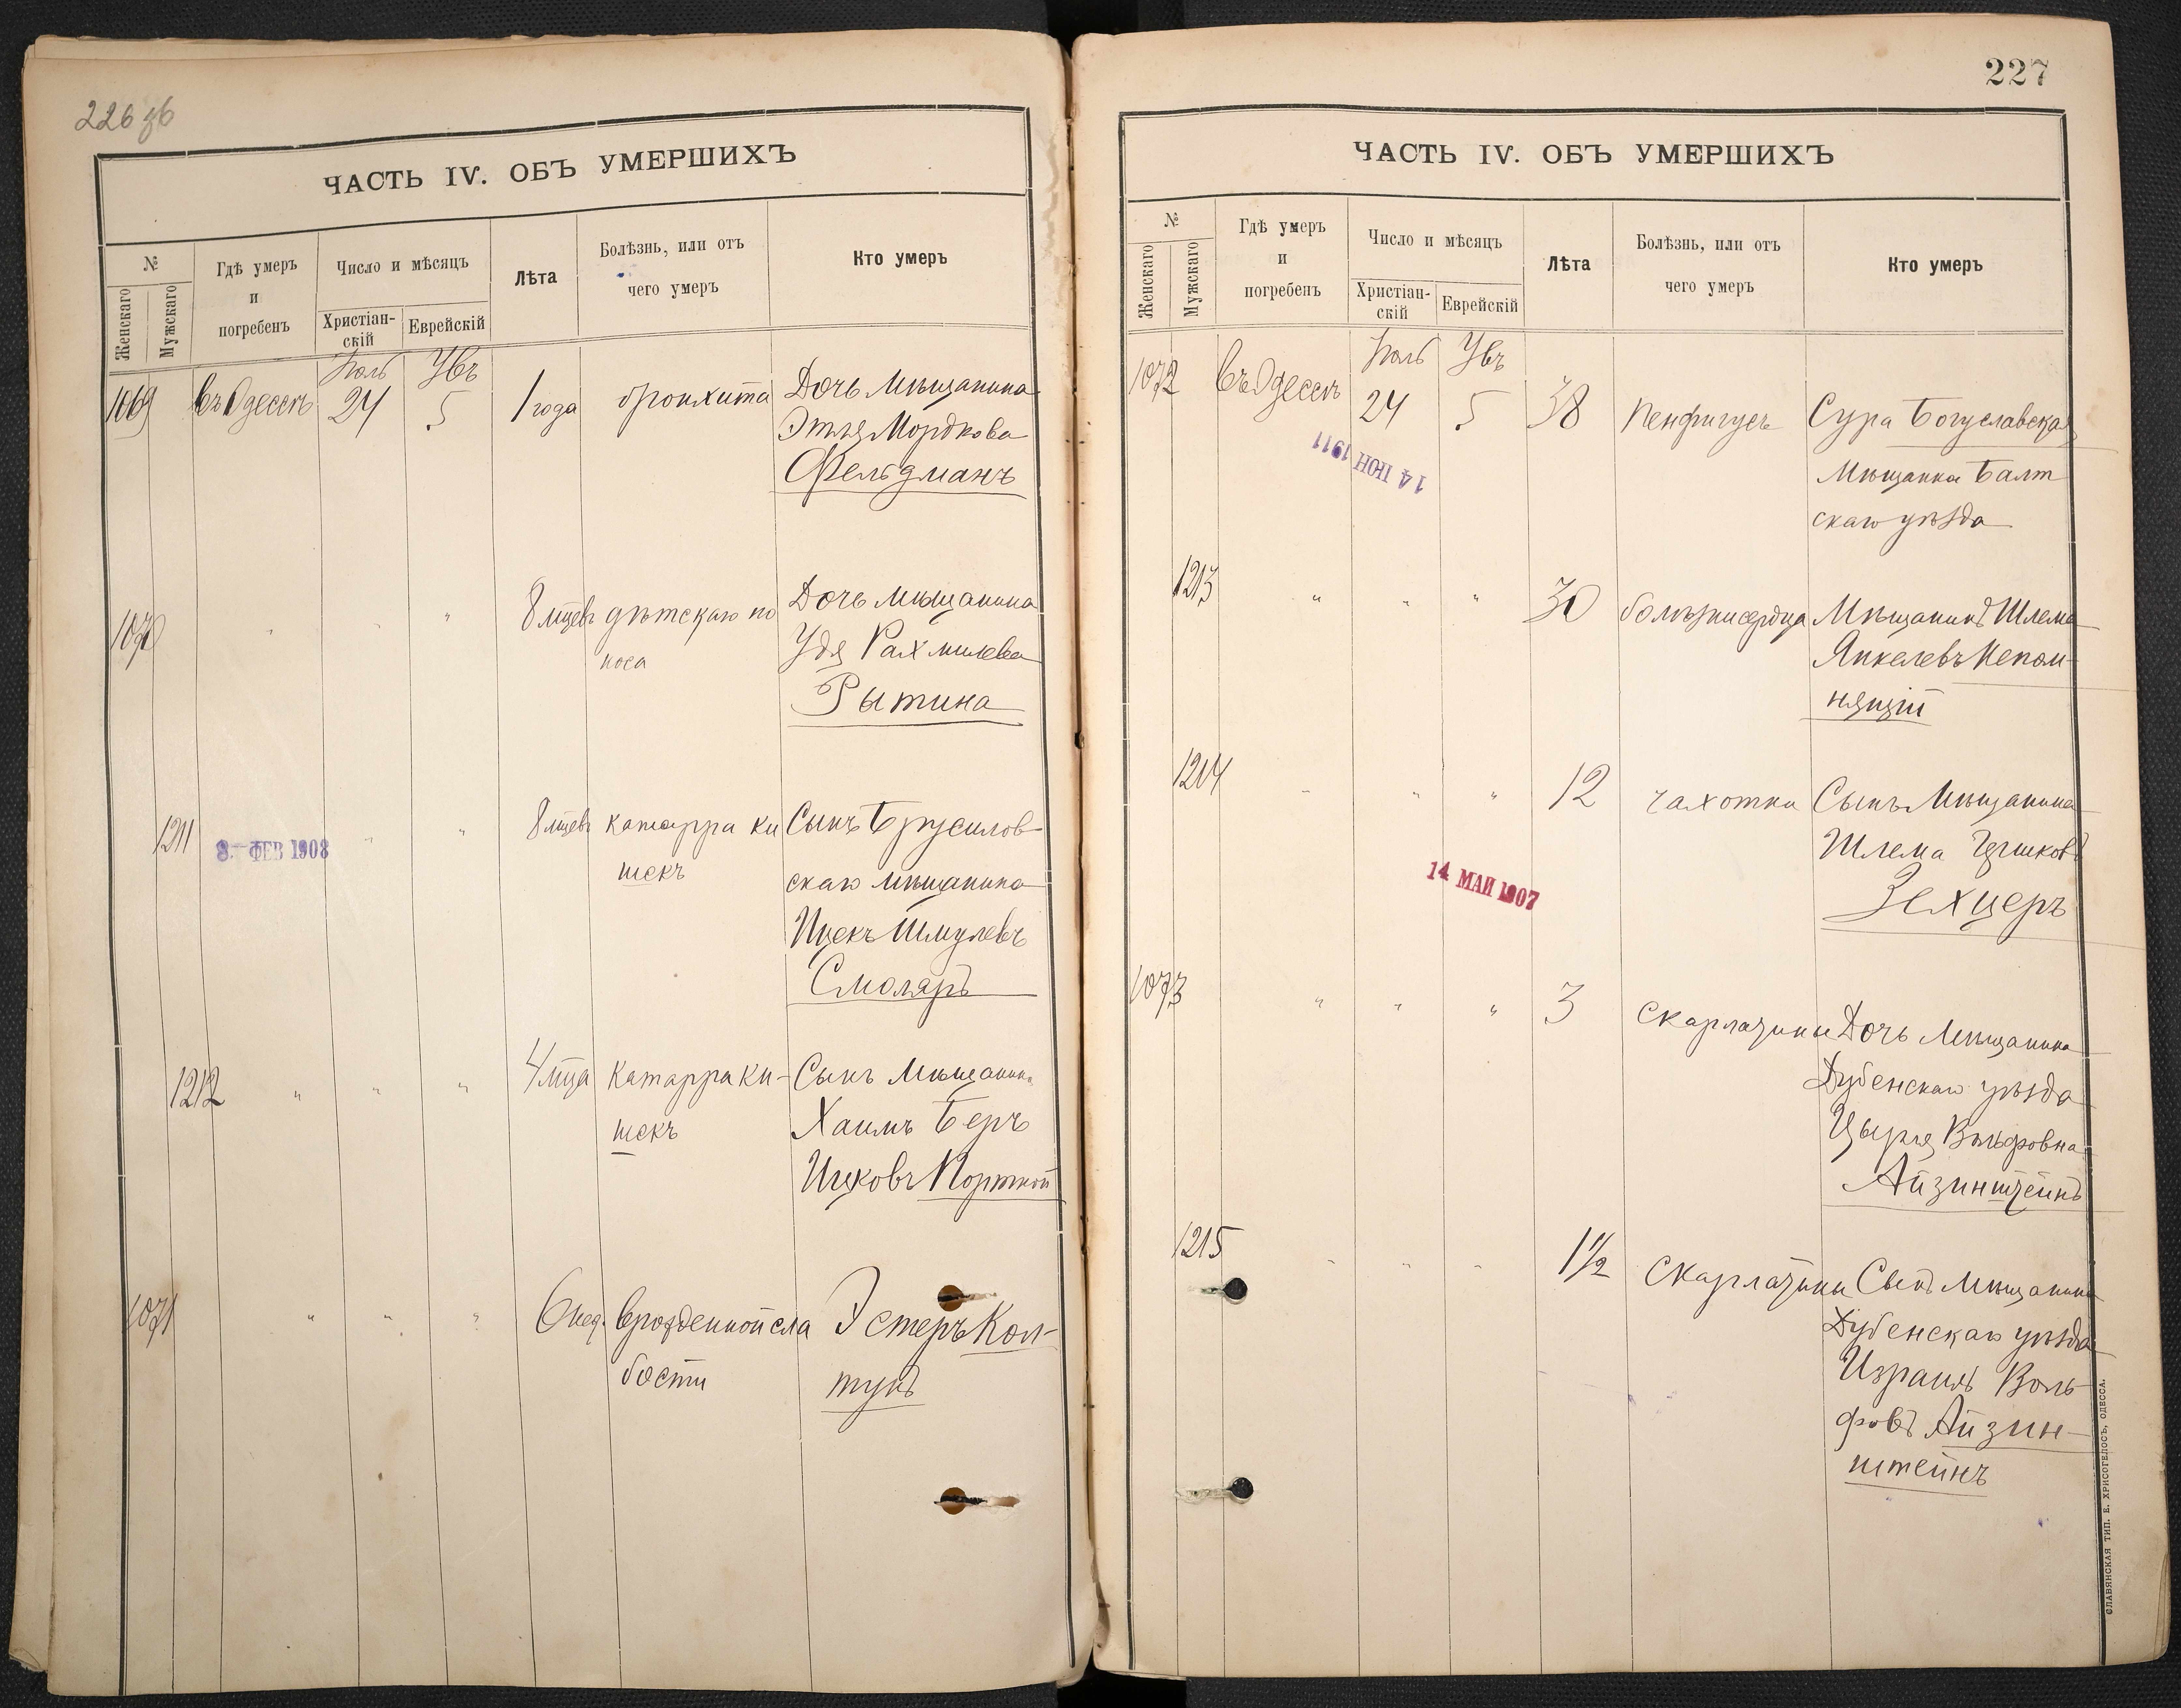 226 об
ЧАСТЬ IV. ОБЪ УМЕРШИХЪ
№
Женскаго
Мужскаго
Гдѣ умеръ
и
погребенъ
Число и мѣсяцъ
Христіан-
скій
Еврейскій
Лѣта
Болѣзнь, или отъ
чего умеръ
Кто умеръ
Іюль
Увъ
1069
въ Одессѣ
24
5
1 года
бронхита
Дочь Мѣщанина
Этля Мордкова
Фельдманъ
1070
"
"
"
8 мцевъ
дѣтскаго по
носа
Дочь мѣщанина
Удя Рахмилева
Рытина
1211
8 - ФЕВ 1908
"
"
8 мцевъ
катарра ки
шекъ
Сынъ Брусилов-
скаго мѣщанина
Ицекъ Шмулевъ
Смоляръ
1212
"
"
"
4 мца
Катарра ки-
шекъ
Сынъ Мѣщанина
Хаимъ Беръ
Ицковъ Портной
1071
"
"
"
6 нед.
врожденной сла
бости
Эстеръ Кол-
тунъ
227
ЧАСТЬ IV. ОБЪ УМЕРШИХЪ
№
Женскаго
Мужскаго
Гдѣ умеръ
и
погребенъ
Число и мѣсяцъ
Христіан-
скій
Еврейскій
Лѣта
Болѣзнь, или отъ
чего умеръ
Кто умеръ
Іюль
Увъ
1072
Въ Одессѣ
24
5
38
Пенфигусъ
Сура Богуславская
Мѣщанка Балт
скаго уѣзда
14 ІЮН 1911
1213
"
"
"
30
болѣзни сердца
Мѣщанинъ Шлема
Янкелевъ Непом-
нящій
1214
"
"
"
12
чахотки
Сынъ Мѣщанина
Шлема
Зехцеръ
14 МАЙ 1907
1073
"
"
"
3
Скарлатины
Дочь Мѣщанина
Дубенскаго уѣзда
Цырля Вольфовна
Айзинштейнъ
1215
"
"
"
1 1/2
Скарлатины
Сынъ Мѣщанина
Дубенскаго уѣзда
Израиль Воль-
фовъ Айзин-
штейнъ
СЛАВЯНСКАЯ ТИП. Е. ХРИСОГЕЛОСЪ, ОДЕССА.